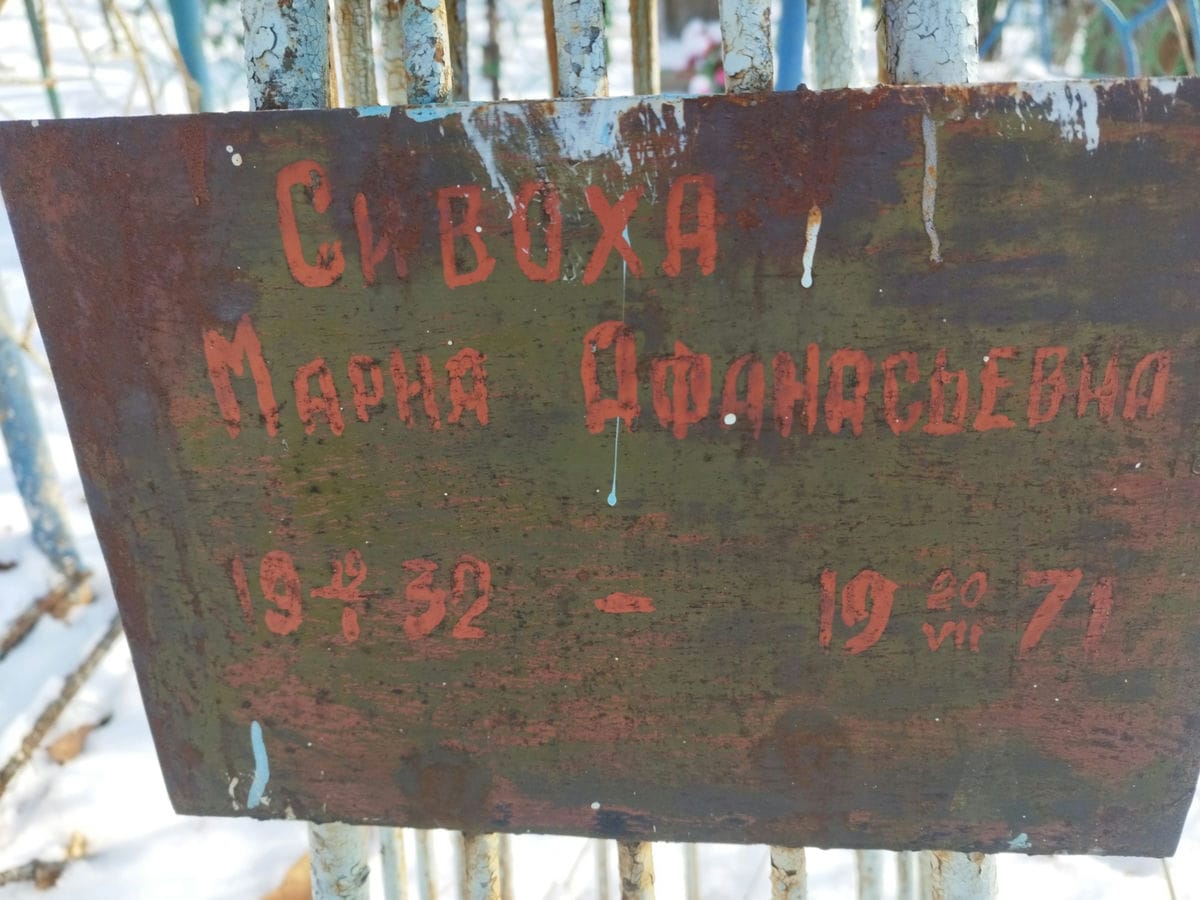 Сивоха
Мария Афанасьевна
19 19/I 32 - 19 20/VII 71